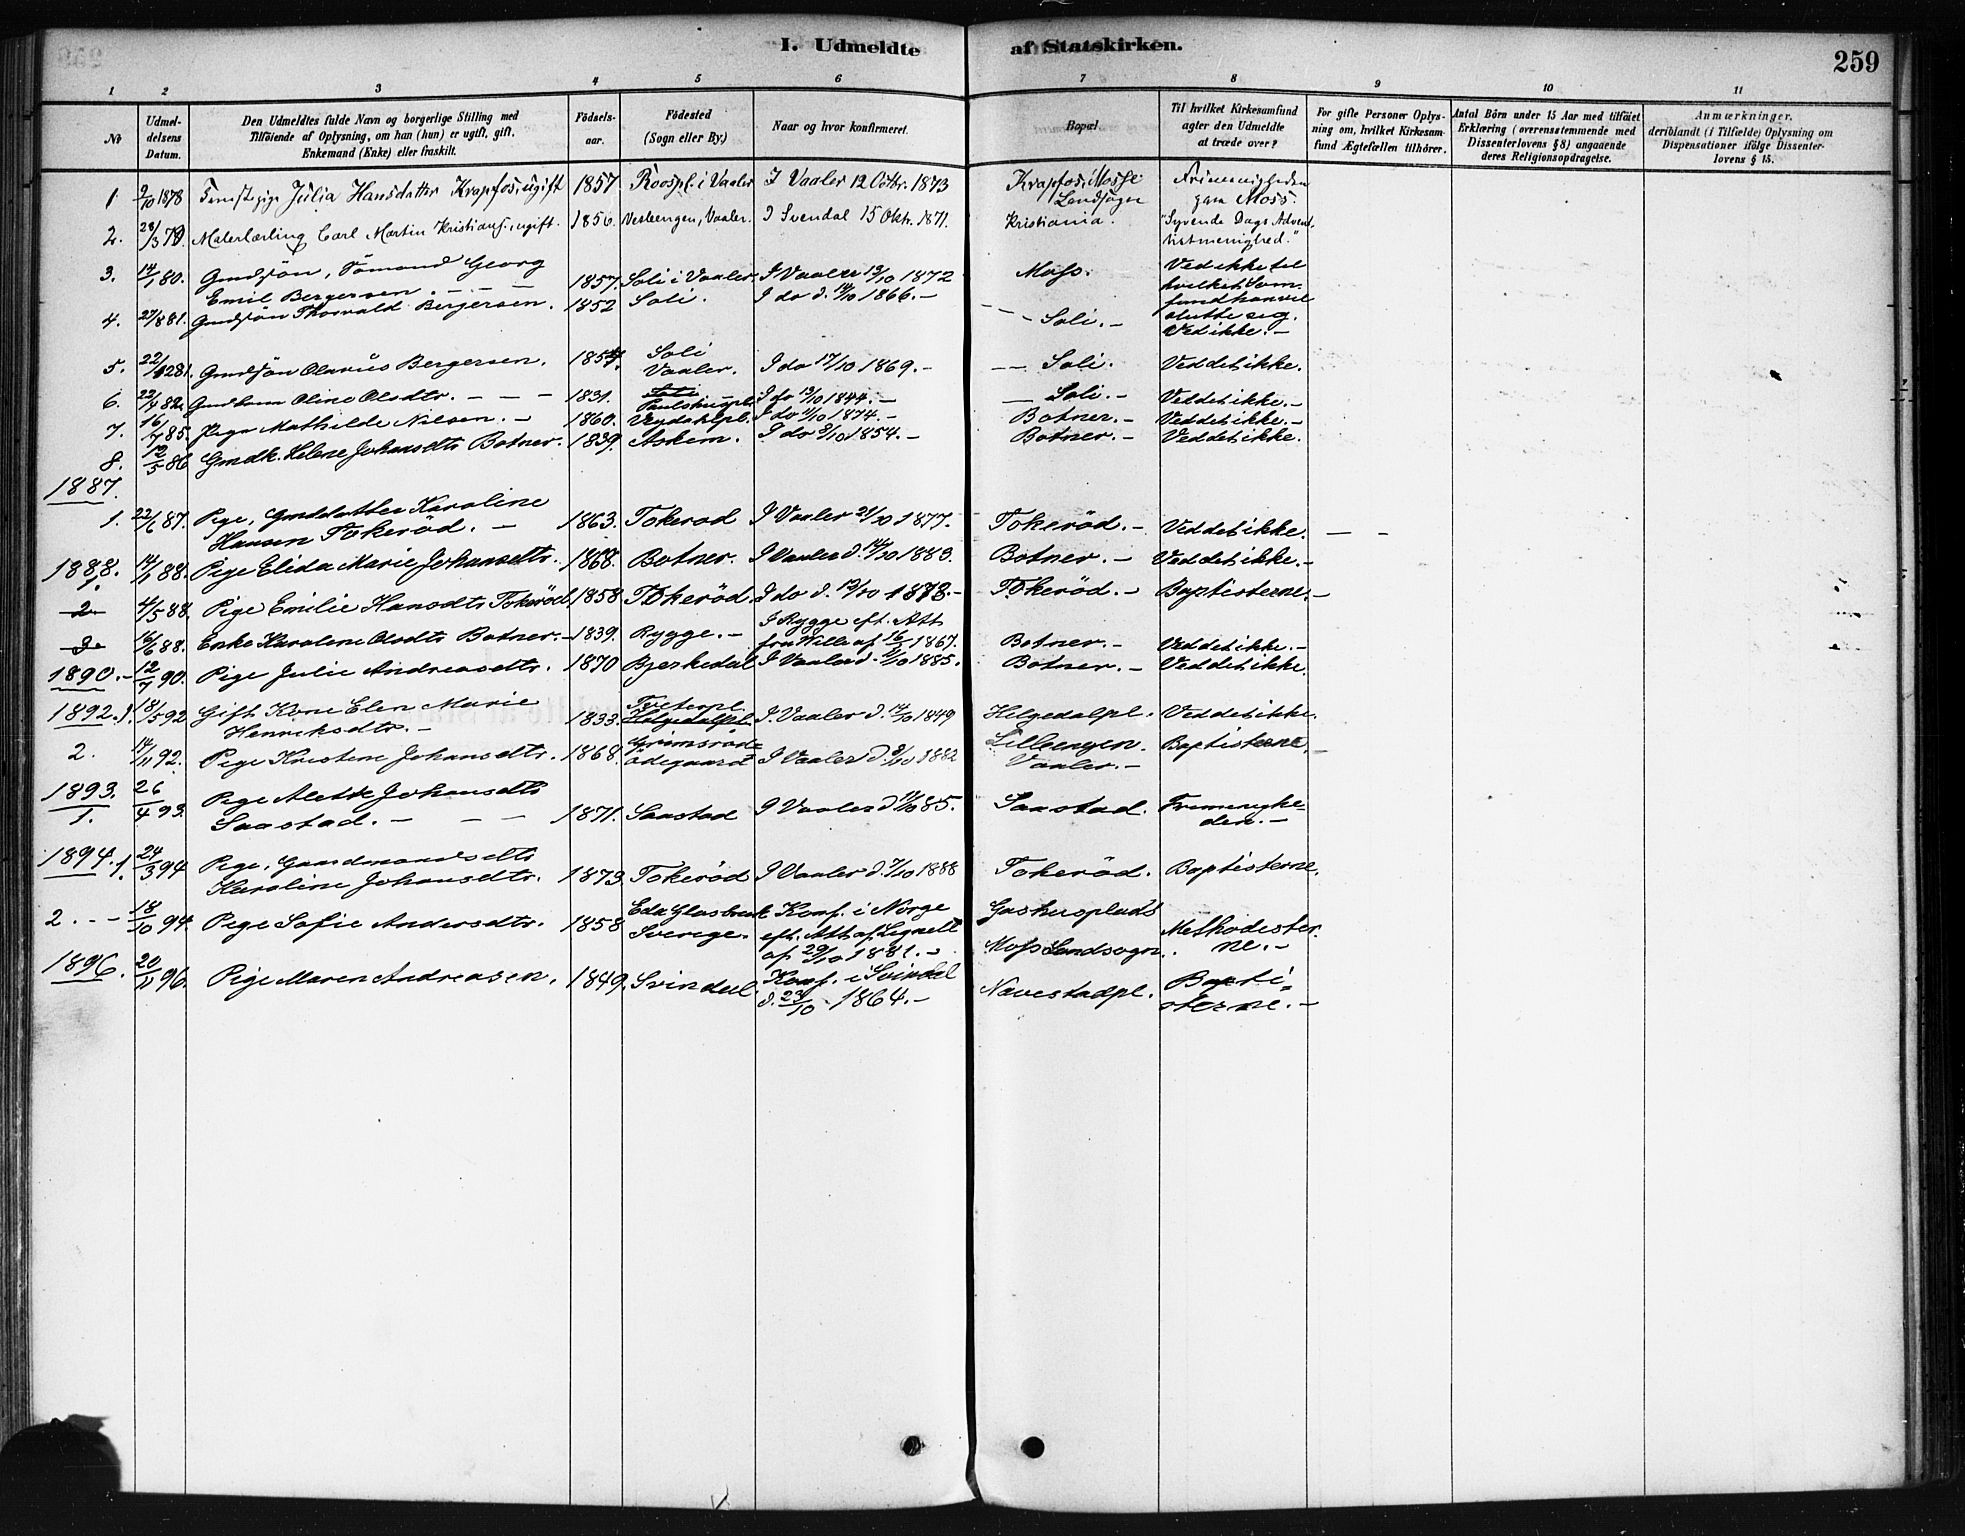 I. Udmeldte af Statskirken.
259
1 2 3 4 5 6 7 8 9 10 11
No
Udmel-
delsens
Datum.
Den Udmeldtes fulde Navn og borgerlige Stilling med
Tilföiende af Oplysning, om han (hun) er ugift, gift,
Enkemand (Enke) eller fraskilt.
Födsels-
aar.
Födested
(Sogn eller By.)
Naar og hvor konfirmeret.
Bopæl.
Til hvilket Kirkesamfund
agter den Udmeldte
at træde over?
For gifte Personer Oplys-
ning om, hvilket Kirkesam-
fund Ægtefællen tilhörer.
Antal Börn under 15 Aar med tilföiet
Erklæring (overensstemmende med
Dissenterlovens § 8) angaaende
deres Religionsopdragelse.
Anmærkninger.
deriblandt (i Tilfælde) Oplysning om
Dispensationer ifölge Dissenter-
lovens § 15.
1 9/10 1878 Julia Hansdatter Krapfos, ugift 1857 Roospl. i Vaaler I Vaaler 12 Octbr. 1873 Krapfos, Mosse Frimenigheden
Landsogn Moss.
2. 28/3 79 Malerlærling Carl Martin Kristians., ugift. 1856. Vesleengen, Vaaler. I Svendal 15 Oktr. 1871. Kristiania. "Syvende Dags Advent
tistmenighed."
3. 14/1 80. Gmdsön, Tömand Georg Moss. Ved ikke til
Emil Bergersen. — — 1857. Soli i Vaaler. I Vaaler 13/10 1872 hvilket Sam-
fund han vil
4. 27/8 81. Gmdsön Thorvald Bergersen. 1852 Soli. I do d. 14/10 1866. — — Soli. — slutte sig.
Ved ikke. —
5. 22/12 81. Gmdsön Olavus Bergersen. 1854. Soli
Vaaler. I do 17/10 1869. — — Soli. Ved det ikke.
6. 22/9 82. Oline Olsdtr. — — — 1831. Soli
I do 13/10 1844. — — Soli. — Ved det ikke. —
7. 16/7 85. Pige Mathilde Nilsen. — 1860. I do 11/10 1874. — Botner. — Ved det ikke. —
8. 12/5 86 Gmdk. Helene Johansdtr Botner. 1839. Askem. I do 8/10 1854. — Botner. — Ved det ikke.
1887.
1. 22/6 87. Pige, Gmdsdatter Karoline
Hansen Tokeröd. — 1863. Tokerod I Vaaler 21/10 1877. Tokeröd. — Ved det ikke. — —
1888. 1. 14/1 88. Pige Elida Marie Johansdtr. 1868. Botner. I Vaaler d. 14/10 1883. Botner. — Ved det ikke. —
2 4/5 88. Pige Emilie Hansdtr Tokeröd 1858 Tokeröd I do d. 13/10 1878. — Tokeröd. — Baptisterne. —
3 16/6 88. Enke Karoline Olsdtr Botner. — 1839. Rygge. — I Rygge eft. Att.
fra Wille af 16/ 1867. Botner. — Ved det ikke. —
1890. — 12/7 90. Pige Julie Andreasdtr. 1870 Bjerkedal I Vaaler d. 11/10 1885. Botner. — Ved det ikke.
1892. 1. 18/5 92 Gift Kone Elen Marie
Henriksdtr. — 1833. Tveterpl.
Helgedalpl. I Vaaler d. 14/10 1849 Helgedalpl. Ved det ikke.
2. 14/11 92. Pige Kristine Johansdtr. 1868. Grimsröd
ödegaard I Vaaler d. 8/10 1882 Lilleengen.
Vaaler. — Baptisterne. —
1893.
1. 26/4 93 Pige Alette Johansdtr
Saastad. — — — 1871. Saastad I Vaaler d. 11/10 85. Saastad. Frimenighe-
den. —
1894. 1. 24/3 94 Pige, Gaardmandsdtr
Karoline Johansdtr. 1873 Tokeröd I Vaaler d. 7/10 1888 Tokeröd. Baptisterne.
2. - - 18/10 94. Pige Sofie Andersdtr. 1858 Eda Glasbruk
Sverige. Konf. i Norge
eft. Att. af Lignell
af 29/10 1881. — Moss Landsogn. Methodister-
ne. —
1896. 20/ 96. Pige Maren Andreasen. 1849. Svindal. Konf. i Svindal
d. 23/10 1864. — Navestadpl. Bapti-
sterne. —